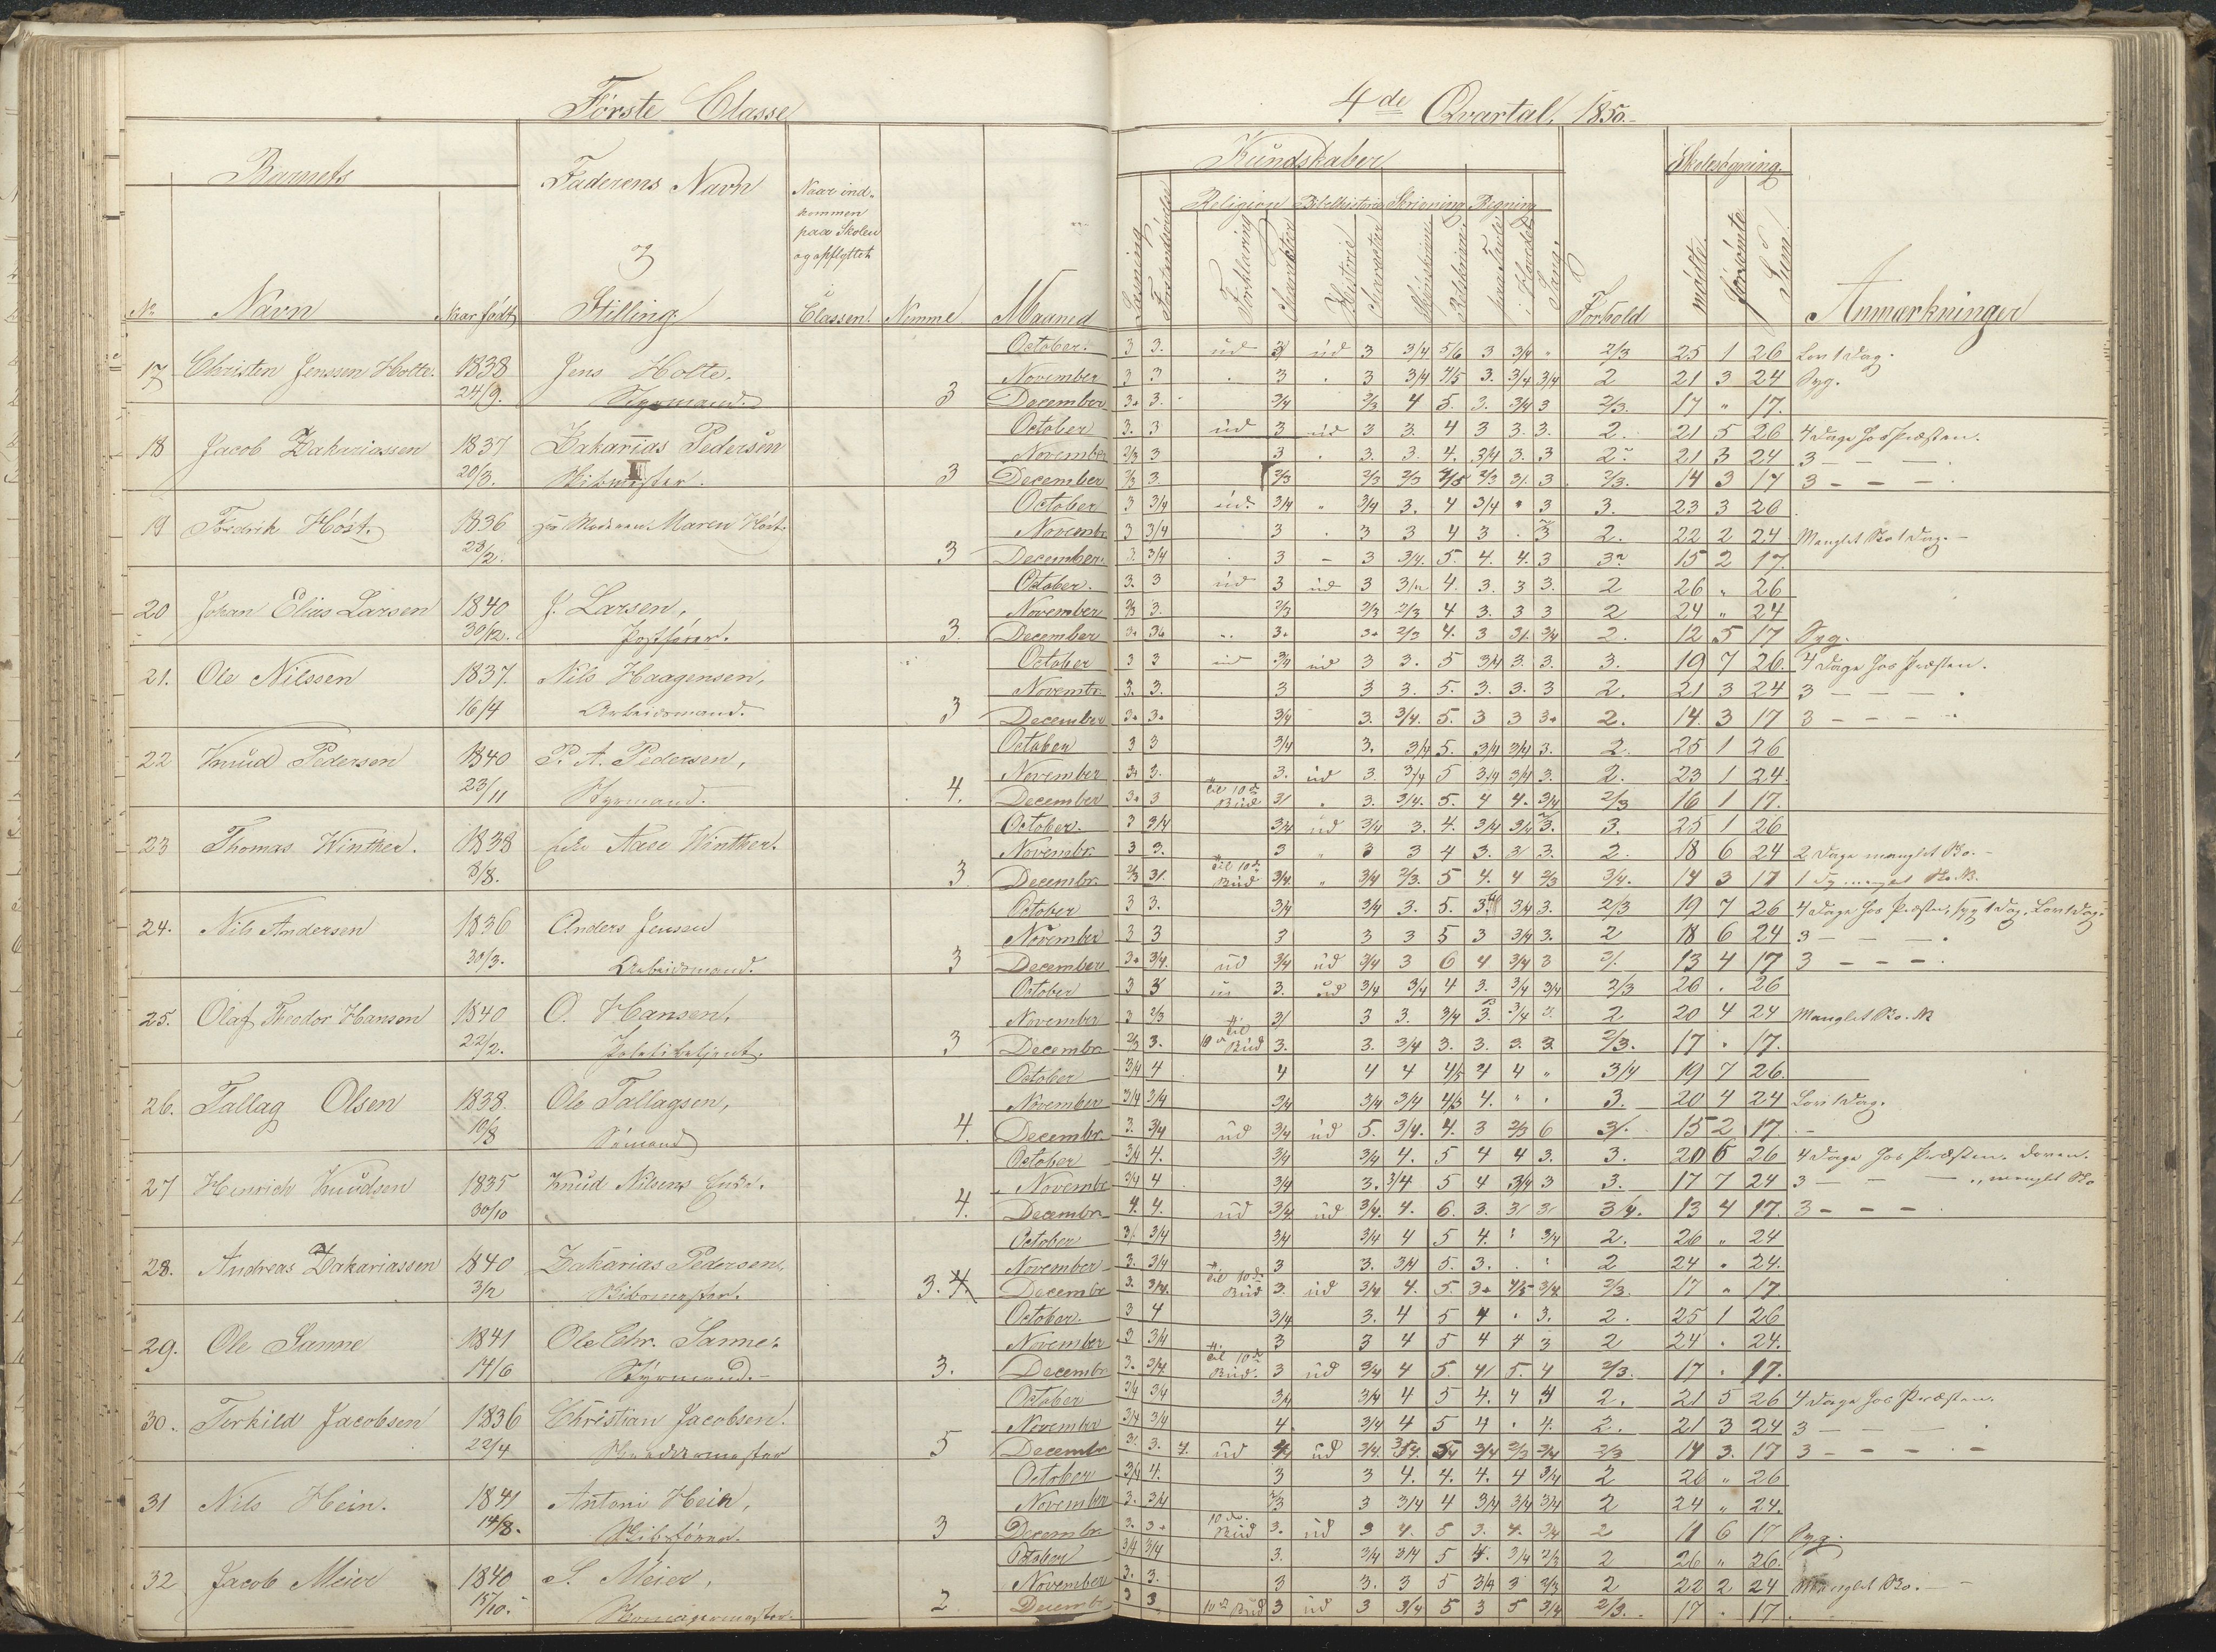 Förste Classe
4de Qvartal, 1850.
Barnets
Faderens Navn
Naar ind-
kommen
paa Skolen
og opflyttet
i
Classen.
Kundskaber
Skolesøgning.
Religion Bibelhistorie Skrivning Regning
No Navn Naar født Stilling Nemme Maaned
Læsning Forklaring Character Historie Character Sang. Forhold mødte forsömte Sum Anmærkninger
17 Christen Jenssen Holte. 1838 Jens Holte. October. 3 3. ud 3 ud 3 3/4 5/6 3 3/4 " 2/3 25 1 26 Lov 1 Dag.
November 3 3 . 3 . 3 3/4 4/5 3. 3/4 3/4 2 21 3 24 Syg.
24/9. Styrmand. 3 December 3+ 3. 3/4 2/3 4 5. 3. 3/4 3 2/3. 17 " 17.
18 Jacob Zakariassen 1837 Zakarias Pedersen October 3. 3 ud 3 ud 3 3. 4 3 3. 3. 2. 21 5 26 4 Dage hos Præsten.
November 2/3 3 3 . 3. 3. 4. 3/4 3. 3 2. 21 3 24 3 — — —
20/3. 3 December 2/3 3 2/3 2/3 2/3 4/5 2/3 3/. 3 2/3. 14 3 17 3 — — —
19 Fredrik Höst. 1836 Maren Höst. October 3 3/4 ud. 3/4 " 3/4 3. 4 3/4 " 3 3. 23 3 26
Novembr. 3 3/4 3 . 3 3 4 3 . 3 2. 22 2 24 Manglet Sko 1 Dag.
28/2. 3 December. 3. 3/4 3 - 3 3/4. 5. 4. 4. 3 15 2 17.
20 Johan Elias Larsen 1840 J. Larsen, October. 3. 3 ud 3 ud 3 4. 3. 3 3. 2 26 " 26
November 2/3 3. 2/3 2/3 2/3 4 3. 3 3 2 24 " 24
30/12. Postförer. 3. December 3+ 3+ 3+ 3+ 2/3 4. 3 3/. 3/4 2. 12 5 17 Syg.
21. Ole Nilssen 1837. Nils Haagensen, October 3 3 ud 3/4 ud 3 3. 5 3/4 3. 3. 3. 19 7 26. 4 Dage hos Præsten.
Novembr. 3. 3. 3 3 3. 5. 3. 3. 3 2. 21 3 24 3 — — —
16/4 Arbeidsmand. 3 December 3+ 3+ 3/4 3. 3/4. 5. 3 3 3+ 2. 14. 3 17 3 — — —
22 Knud Pedersen 1840 P. A. Pedersen, October 3 3 3/4 3. 3/4 5. 3/4 3/4 3. 2. 25 1 26
November 3+ 3. 3. ud 3. 3/4 5 3/4 3/4 3. 2. 23 1 24.
23/11 Styrmand. 4. December 3+ 3 til 10de Bud 3/ " 3. 3/4. 5. 4 4. 3/4 2/3 16 1 17.
23 Thomas Winther. 1838 Aase Winther. October. 3 3/4 3/4 ud 3/4 3. 4. 3/4 3/4 3. 3. 25 1 26
Novembr. 3 3. 3 " 3 3 4 3. 3/ 3. 2. 18 6 24 2 Dage manglet Sko.
8/8. 3 Decembr. 2/3 3/. til 10de Bud 3/4. " 3/4 2/3. 5 4. 4 2/3 3/4. 14 3 17
24. Nils Andersen 1836 Anders Jensen October 3 3. 3/4 3/4 3. 5. 3/4 3. 2/3 19 7 26 4 Dage hos Præsten, syg 1 Dag. Lov 1 Dag.
November 3 3 3 3 3 5 3 3/4 3. 2 18 6 24 3 — — —
30/3. Arbeidsmand. 3 December 3+ 3/4. ud 3/4 ud 3/4 3 6 4 3/4 3 13 4 17 3 — — —
25. Olaf Thredor Hansen 1840 O. Hansen, October 3 3 3. ud 3/4 3/4 4 3. 3/4 3/4 2/3 26 . 26
November 3 2/3 3/ 3 3. 3/4 3. 3/4 2 20 4 24 Manglet Sko.
22/2. Politibetjent. 3 Decembr. 2/3 3. til 10de Bud 3. 3. 3/4 3. 3. 3. 3 2/3. 17 . 17.
26. Tallag Olsen 1838. Ole Tallagsen, October 3/4 4 4 4 4 4/5 4 4 " 3/4 19 7 26.
November 3/4 3/4 3/4 3/4 3/4 4/5 4. " . 3. 20 4 24 Lov 1 Dag.
10/8 Sömand 4. Decembr. 3. 3/4 ud 3/4 ud 5. 3/4. 4. 3 2/3 6 3/. 15 2 17.
27 Henrich Knudsen 1835 Knud Nilsens Enke. October 3/4 4. 3/4 3/4 4. 5 4 4 3. 3. 20 6 26 4 Dage hos Præsten.
Novembr 3/4 4 3/4 3. 3/4 5 4 3/4 3 3. 17 7 24 3 — — — manglet Sko
30/10 4. Decembr. 4. 4. ud 3/4 ud 3/4. 4. 6. 3. 3/ 3/ 3/4. 13 4 17. 3 — — —
28. Andreas Zakariassen 1840 Zakarias Pedersen, October 3/ 3/4 3/4 3/4 4 5 4. " 3/4 2. 26 " 24
November 3. 3/4 3 3. 3/4 5. 3. . 2 24 . 24.
3/2 3. 4. Decembr 3. 3/4. til 10de Bud 3. ud 3/4 4. 5. 3+ 4/5 3/4 2/3. 17 " 17.
29. Ole Sanne 1841 Ole Chr. Sanne. October. 3 4 3/4 3. 4 5 4 . 3. 2. 25 1 26
November 3 3/4 3 3 4 5 4 4 3 2 24 . 24.
14/6 Styrmand. 3. Decembr 3. 3/4 til 10de Bud. 3 ud 3/4 4 5. 4/ 5. 4 2/3. 17 . 17.
30. Terkild Jacobsen 1836 Christian Jacobsen. October 3/4 3/4 3/4 3/4 4 5 4. 4 4 2. 21 5 26 4 Dage hos Præsten.
November 3/4 3/4 4. 3/4 4 5 4 . 4. 2. 21 3 24 3 — — —
22/4 5 Decembr 3. 3. ud 4 ud 3/4. 3/4 2/3 3/4 2/3 14 3. 17 3 — — —
31 Nils Hein. 1841 Antoni Hein, October 3/4 4. 3 3 4. 4. 4. 4 3/4 2 26 " 26
November 3. 3/4 2/3 3 3/4 4 3/4 3/4 3/4 2 24 " 24.
14/8. Skibsförer. 3 Decembr. 3. 3+ 10de Bud 3. ud 3 4. 5 3. 4. 3/4 2 11 6 17 Syg.
32 Jacob Meier 1840 S. Meier, October 3/4 3/4 3. 3/4 3/4 5 4. 3/4 2/3 2 26 " 26.
November 3. 3. 3 3. 3 5 3/4 3 2/3 2 22 2 24 Manglet Sko.
15/10. 2 Decembr 3 3 10de Bud 3 ud 3 3/4 5 3 5 3/4 2/3. 17 . 17.